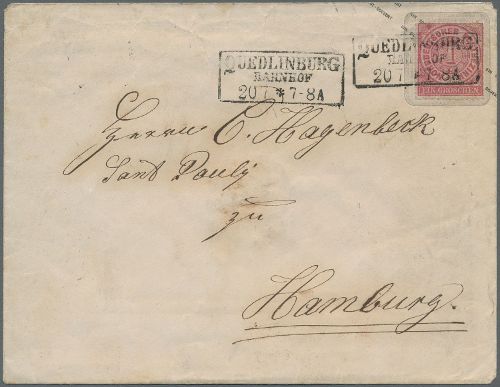 QUEDLINBURG
BAHNHOF
20 7 * 7-8A
QUEDLINBURG
BAHNHOF
20 7 * 7-8A
EIN GROSCHEN
Herrn C. Hagenbeck
Sant Pauly
zu
Hamburg.